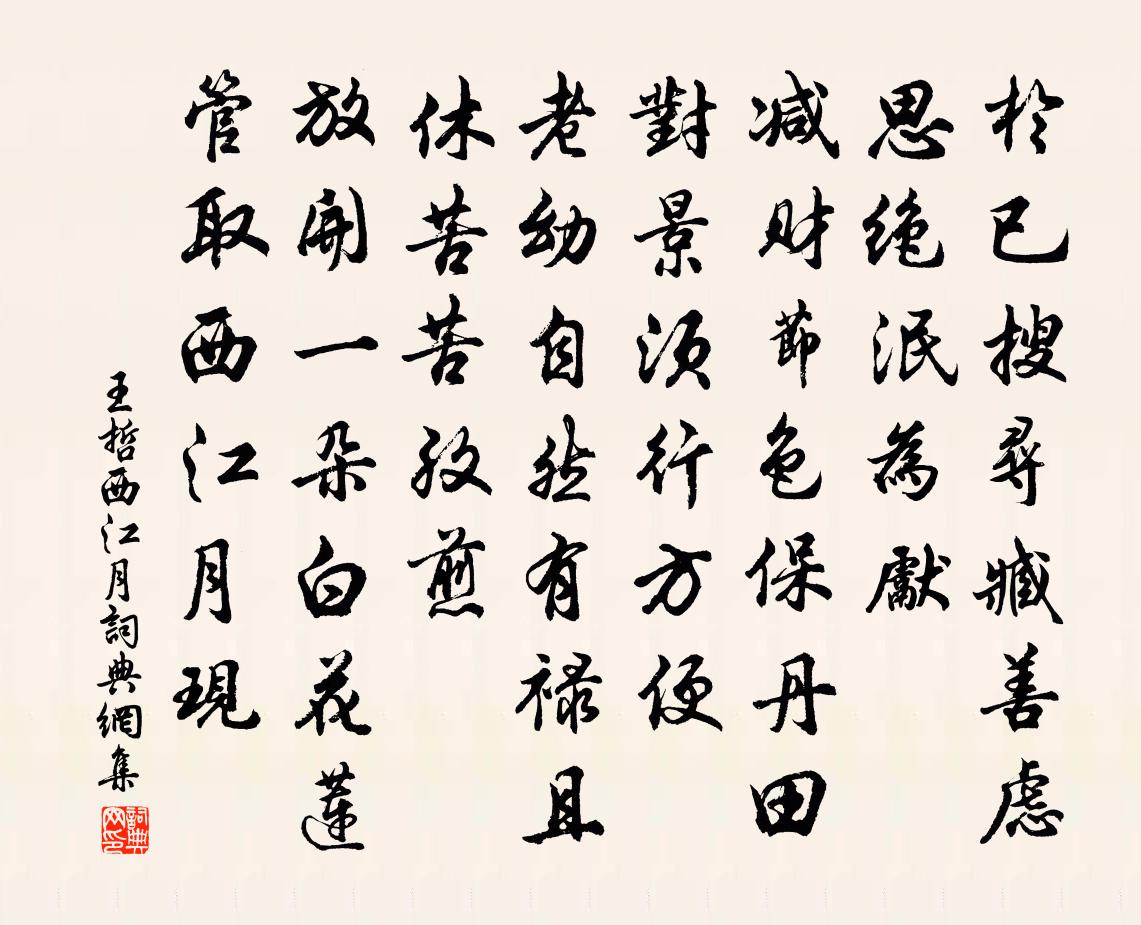 於已搜尋臧善慮
思絶泯為獻
減财節色保丹田
對景須行方便
老幼自然有禄且
休苦苦孜煎
放開一朵白花蓮
管取西江月現
王哲西江月詞典網集
詞典网印